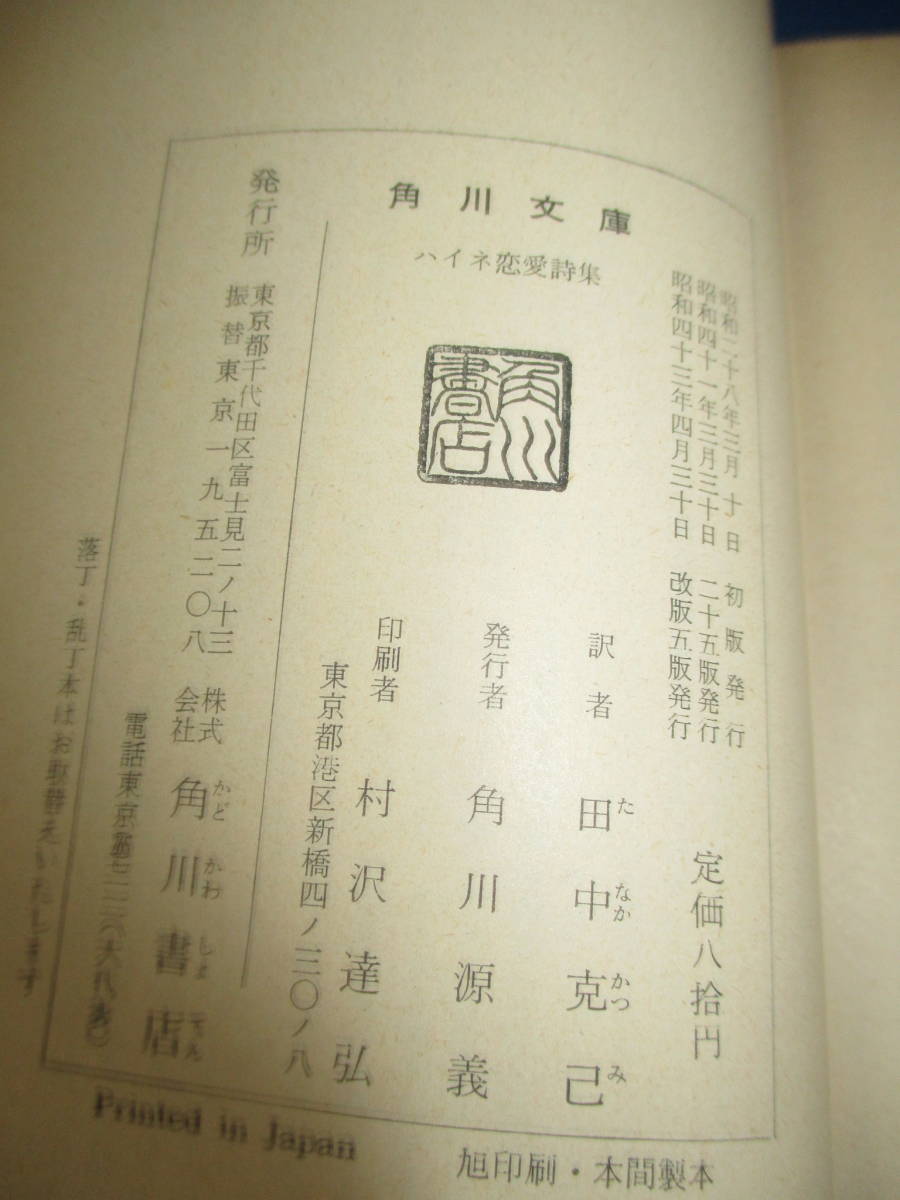 角川文庫
ハイネ恋愛詩集
昭和二十八年三月十日 初版発行
昭和四十一年三月三十日 二十五版発行
昭和四十三年四月三十日 改版五版発行
定価八拾円
訳者 田中克己
たなかかつみ
発行者 角川源義
印刷者 村沢達弘
東京都港区新橋四ノ三〇ノ八
角川書店
発行所
東京都千代田区富士見二ノ十三
振替東京一九五二〇八
株式会社 角川書店
かどかわしょてん
電話東京
(大代表)
落丁・乱丁本はお取替えいたします
Printed in Japan
旭印刷・本間製本